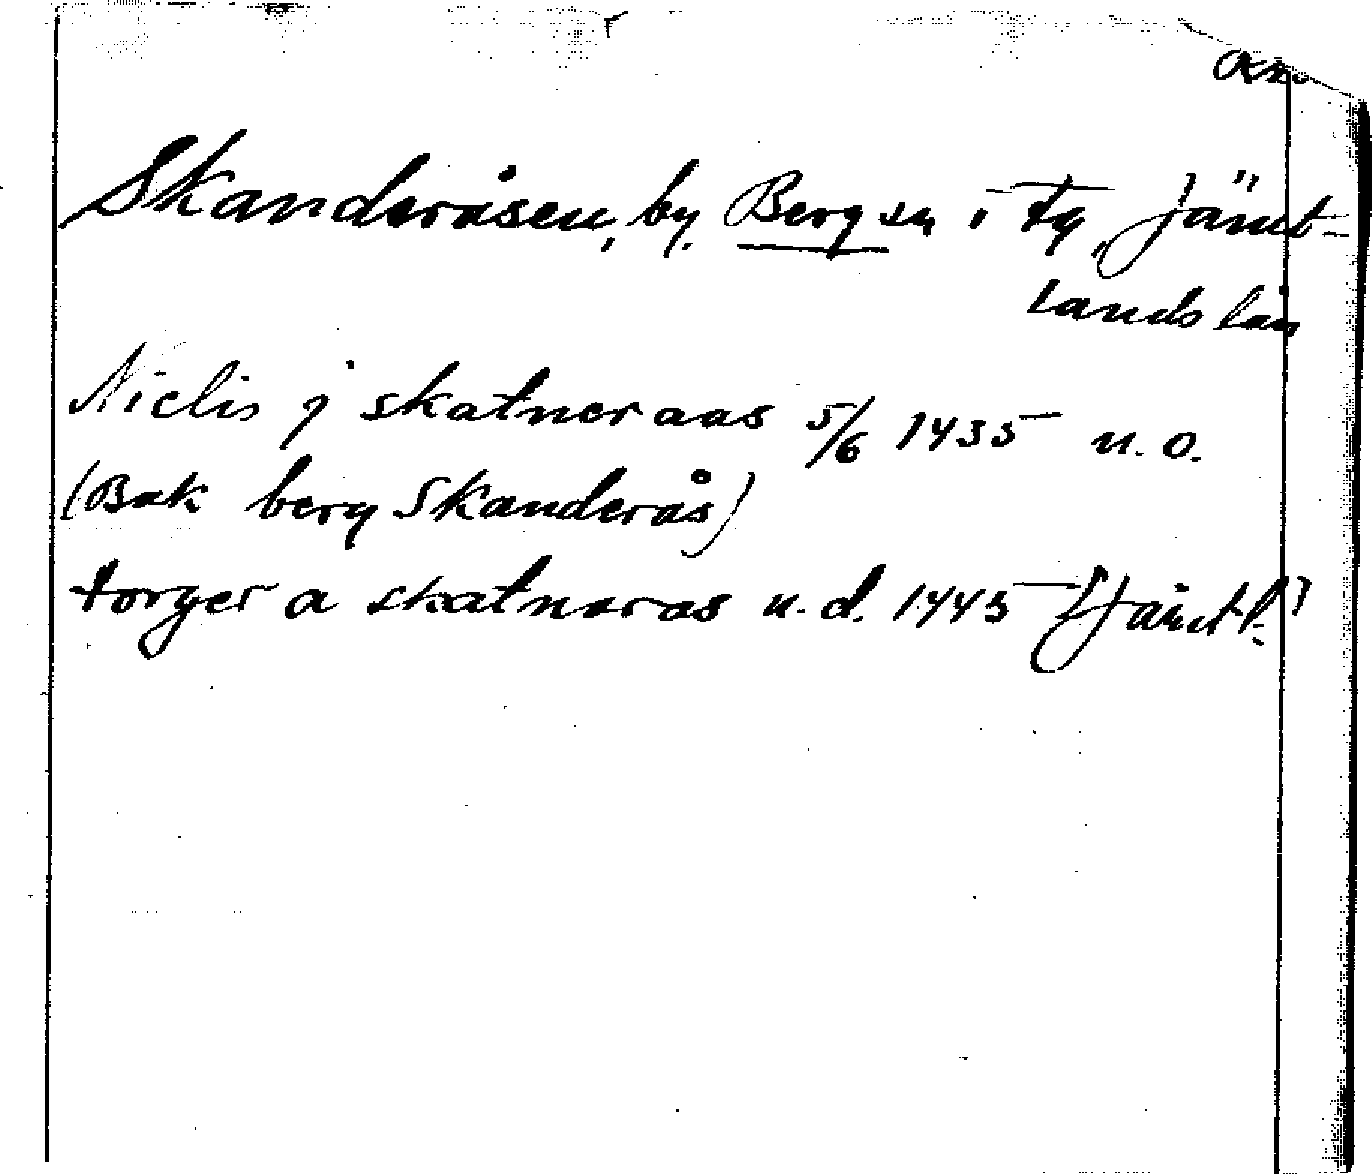 Skanderåsen, by, Berg sn i Fg, Jämt-
lands län
Niclis j skatneraas 5/6 1435 u. o.
(Bak berg Skanderås)
torger a skatnaras u. d. 1445 [Jämtl.?